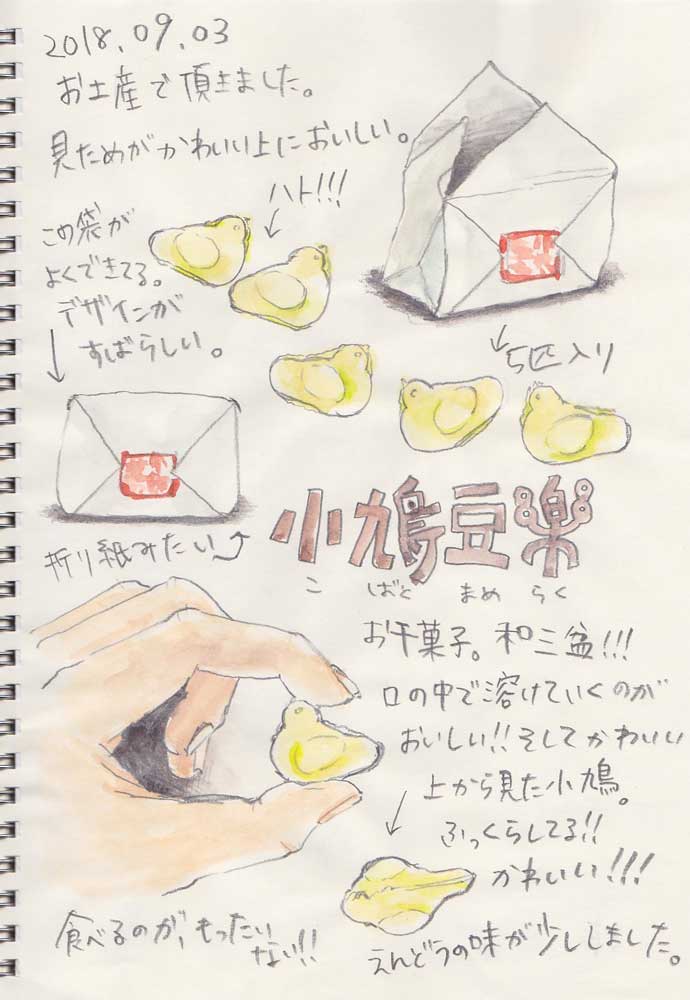 2018.09.03
お土産で頂きました。
見ためがかわいい上においしい。
ハト!!!
この袋が
よくできてる。
デザインが
すばらしい。
5匹入り
折り紙みたい
小鳩豆楽
こ ばと まめ らく
お干菓子。和三盆!!!
口の中で溶けていくのが
おいしい!!そしてかわいい
上から見た小鳩。
ふっくらしてる!!
かわいい!!!
食べるのが、もったい
ない!!
えんどうの味が少ししました。